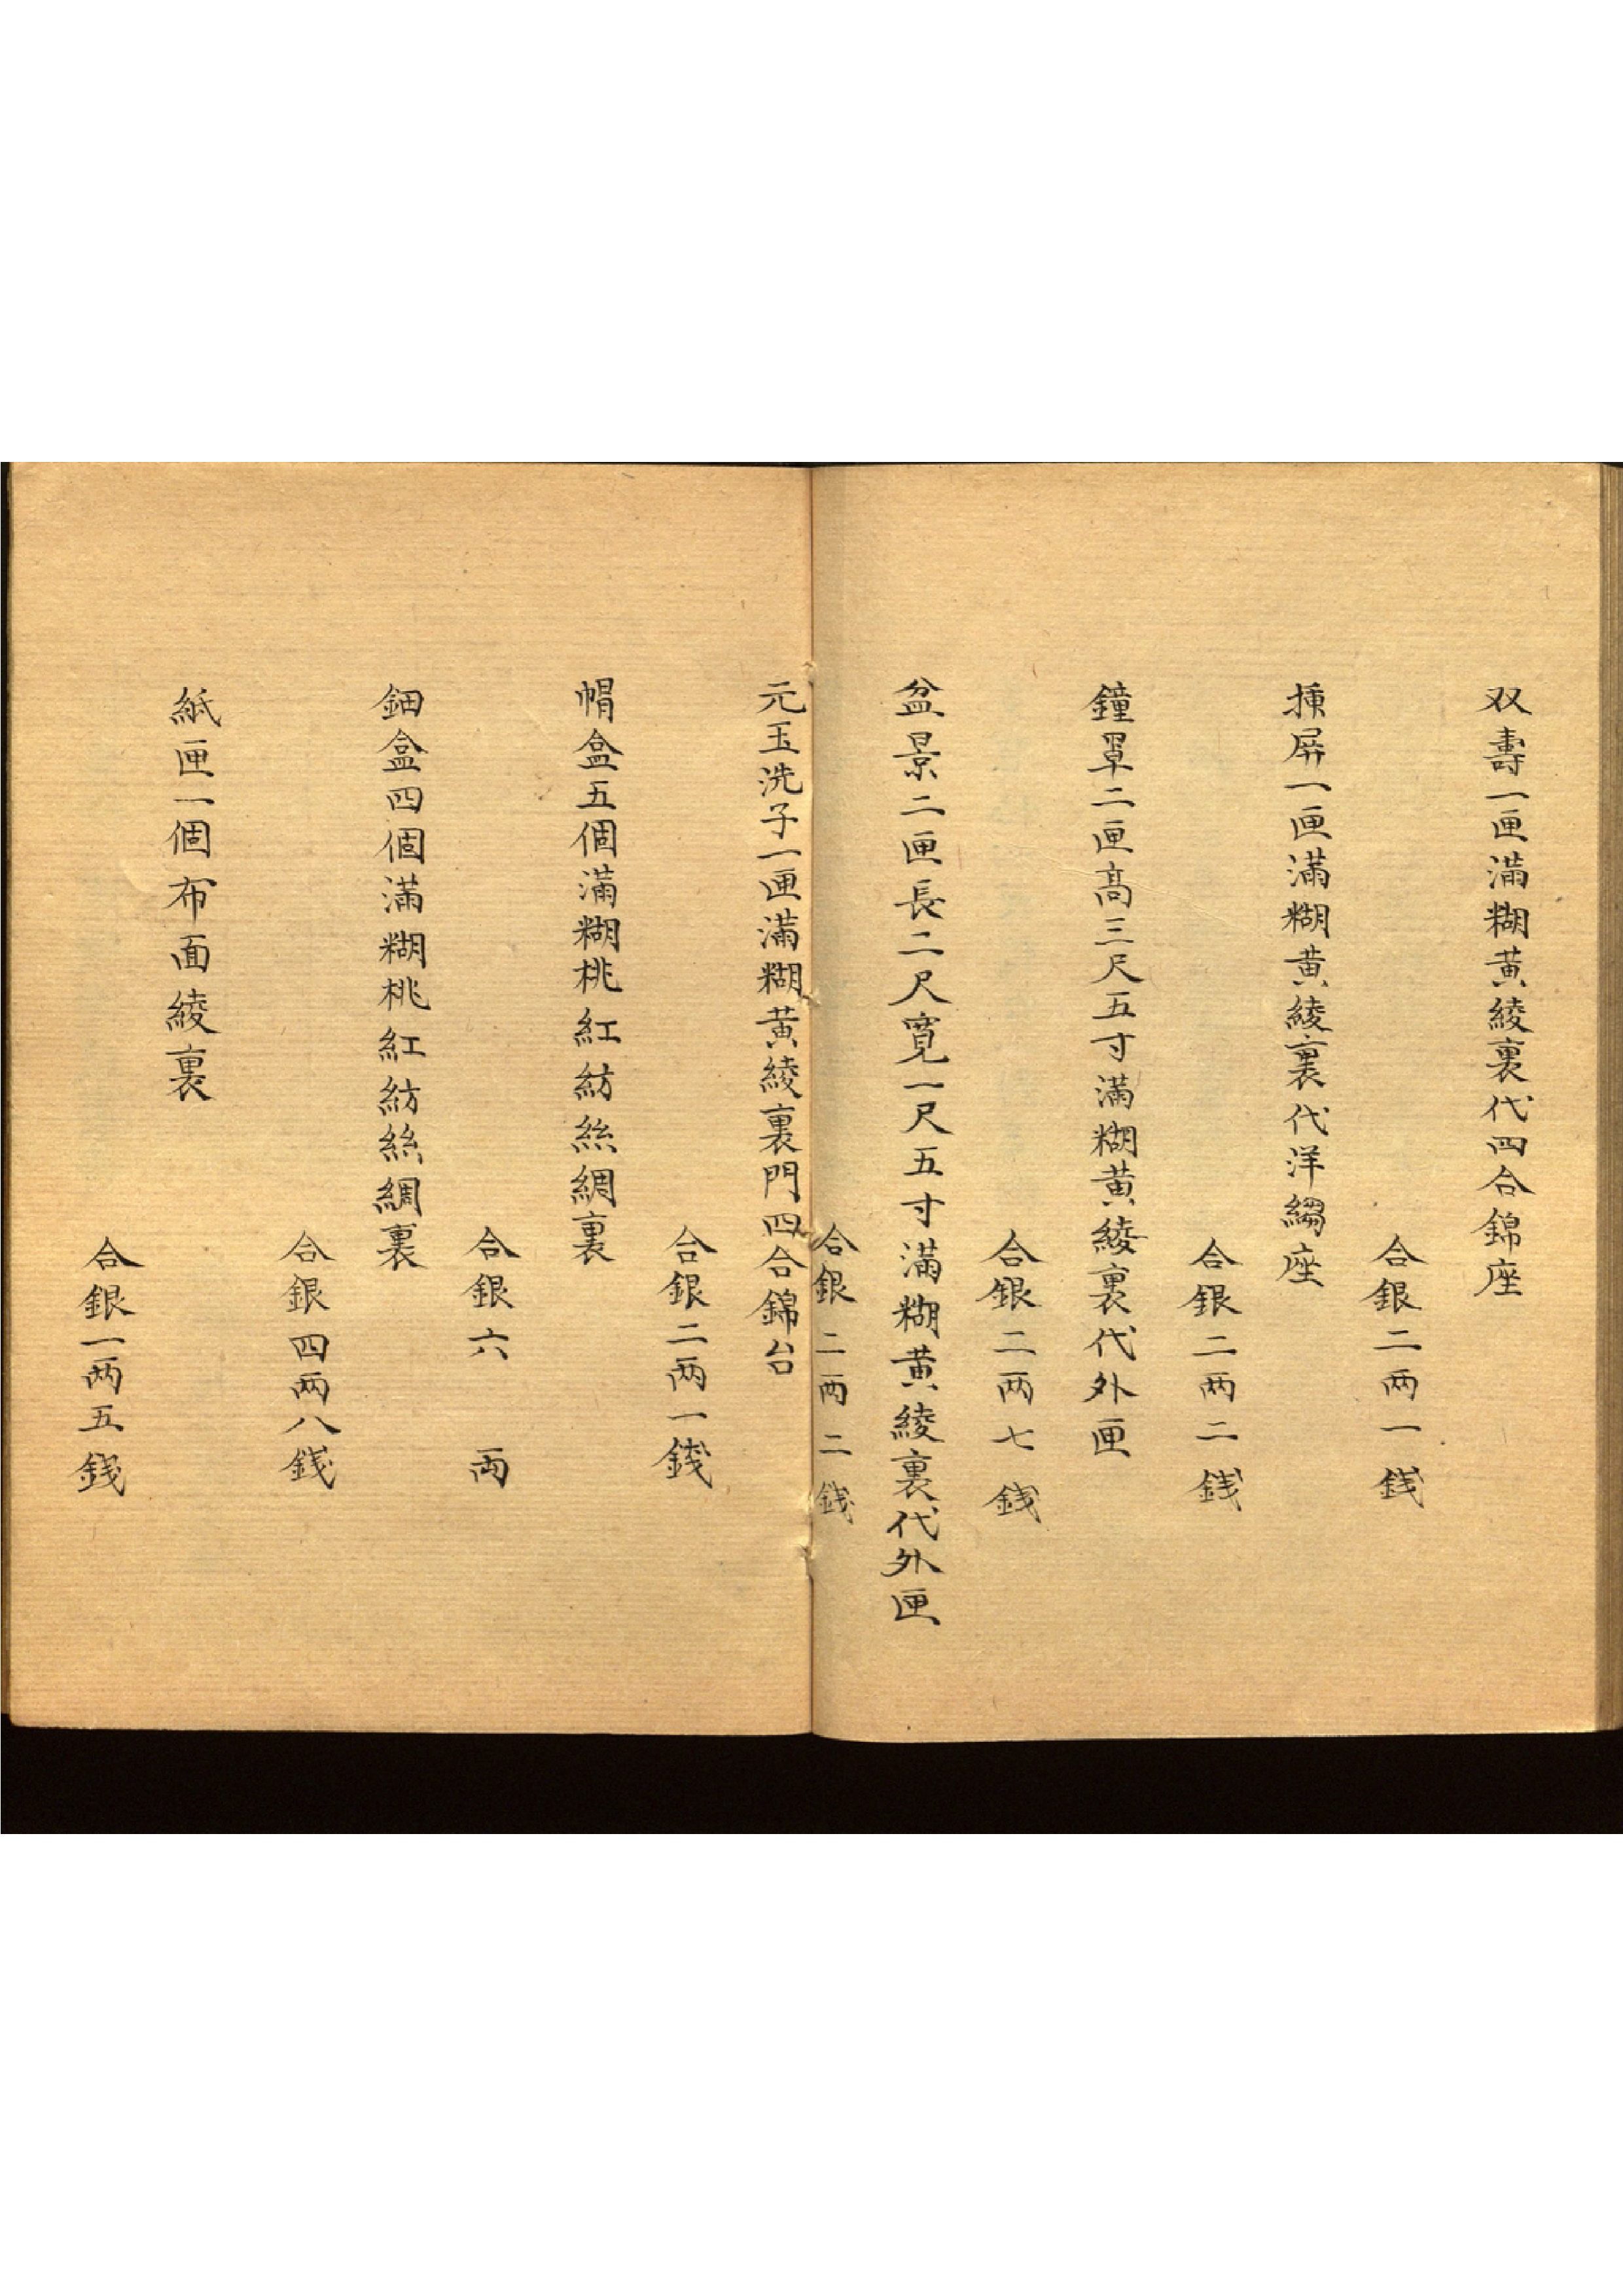 双壽一匣滿糊黄綾裏代四合錦座
合銀二两一銭
揷屏一匣滿糊黄綾裏代洋縐座
合銀二两二銭
鐘罩二匣髙三尺五寸滿糊黄綾裏代外匣
合銀二两七銭
盆景二匣長二尺寛一尺五寸滿糊黄綾裏代外匣
合銀二两二銭
元玉洗子一匣滿糊黄綾裏門四合錦台
合銀二两一銭
帽盒五個滿糊桃紅紡絲綢裏
合銀六两
鈿盒四個滿糊桃紅紡絲綢裏
合銀四两八銭
紙匣一個布面綾裏
合銀一两五銭